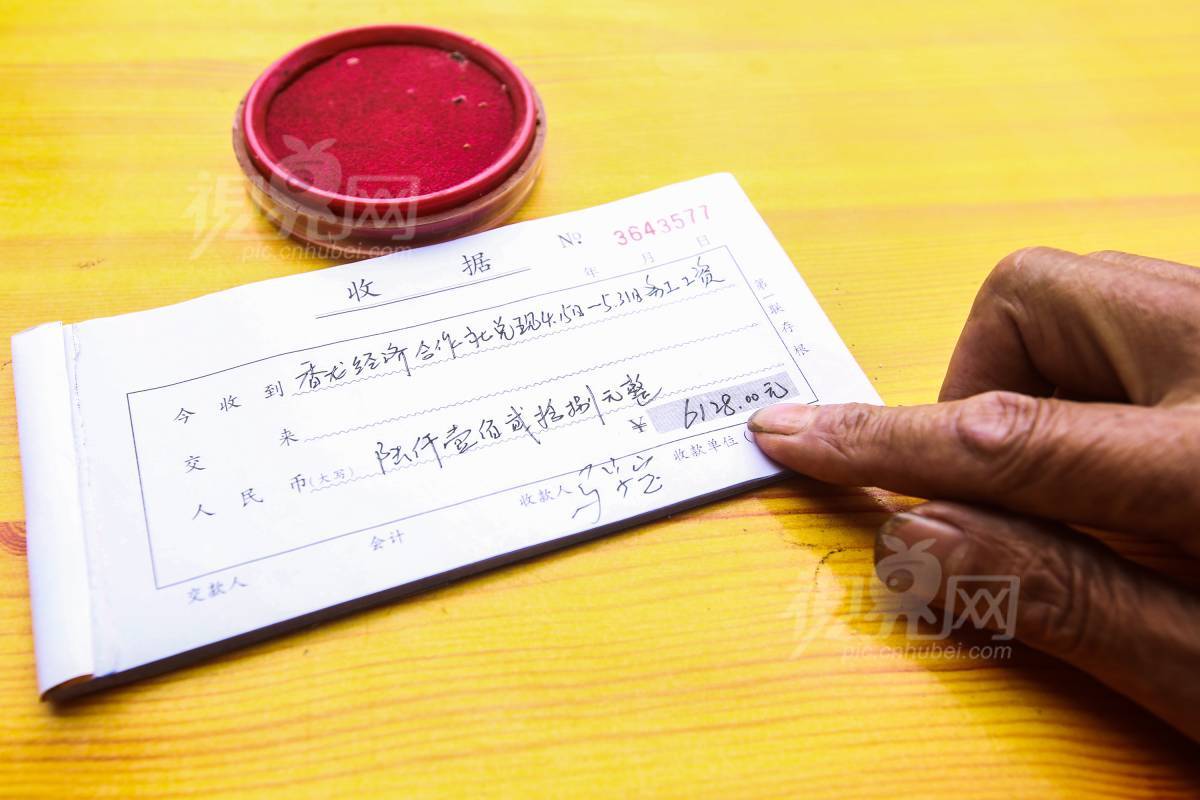 收据
№ 3643577
年 月 日
今收到 香龙经济合作社兑现4.15日-5.31日务工工资
交来
人民币(大写) 陆仟壹佰贰拾捌元整
¥ 6128.00元
收款单位(
收款人
会计
交款人
第一联存根
视界网
pic.cnhubei.com
视界网
pic.cnhubei.com